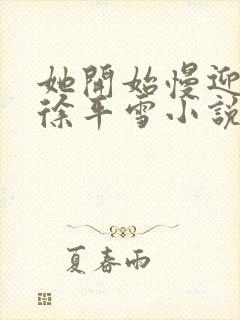 她開始慢迎
徐平雪小說
夏春雨